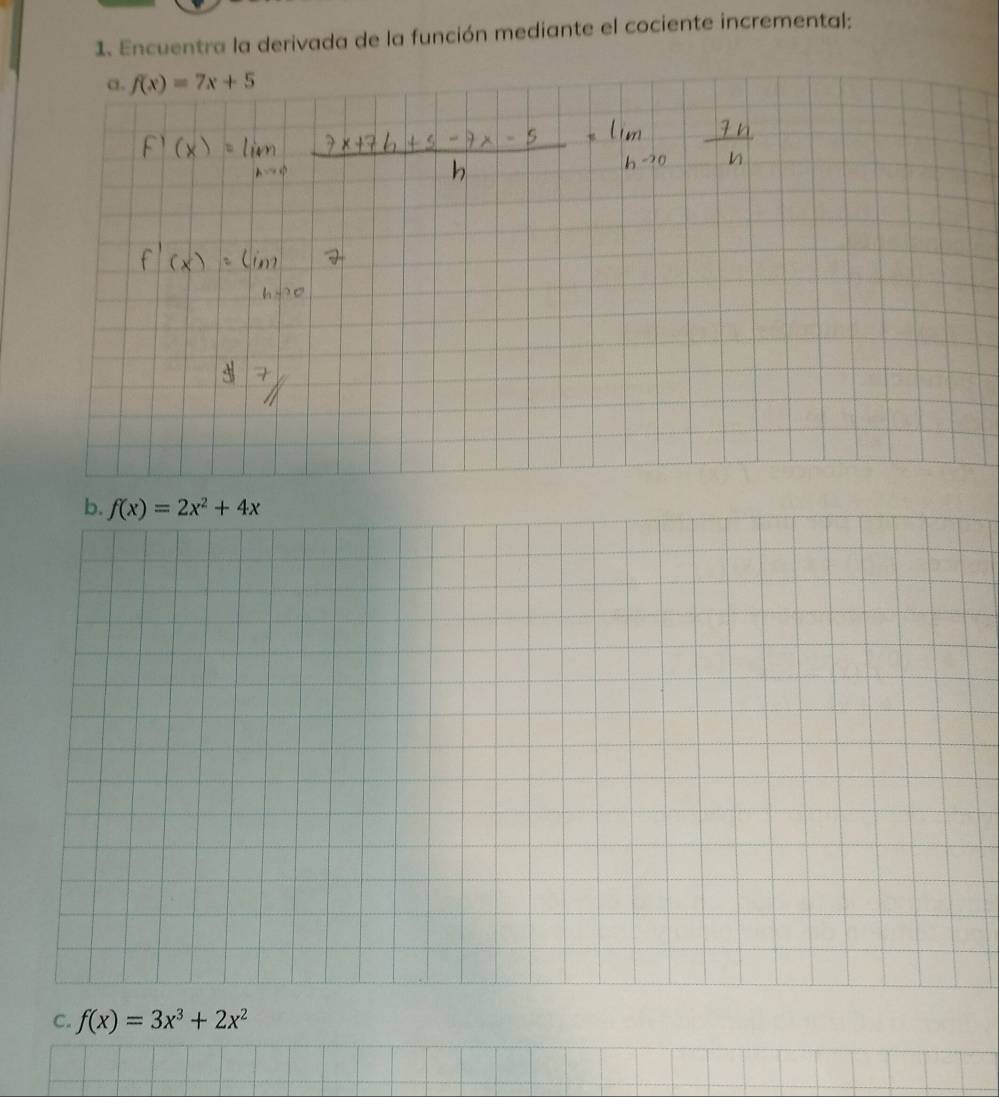 1. Encuentra la derivada de la función mediante el cociente incremental:
a. f(x) = 7x + 5
F'(x) = lim h→0 7x+7h+5-7x-5 / h = lim h→0 7h / h
f'(x) = lim h→0 7
7 //
b. f(x) = 2x² + 4x
c. f(x) = 3x³ + 2x²